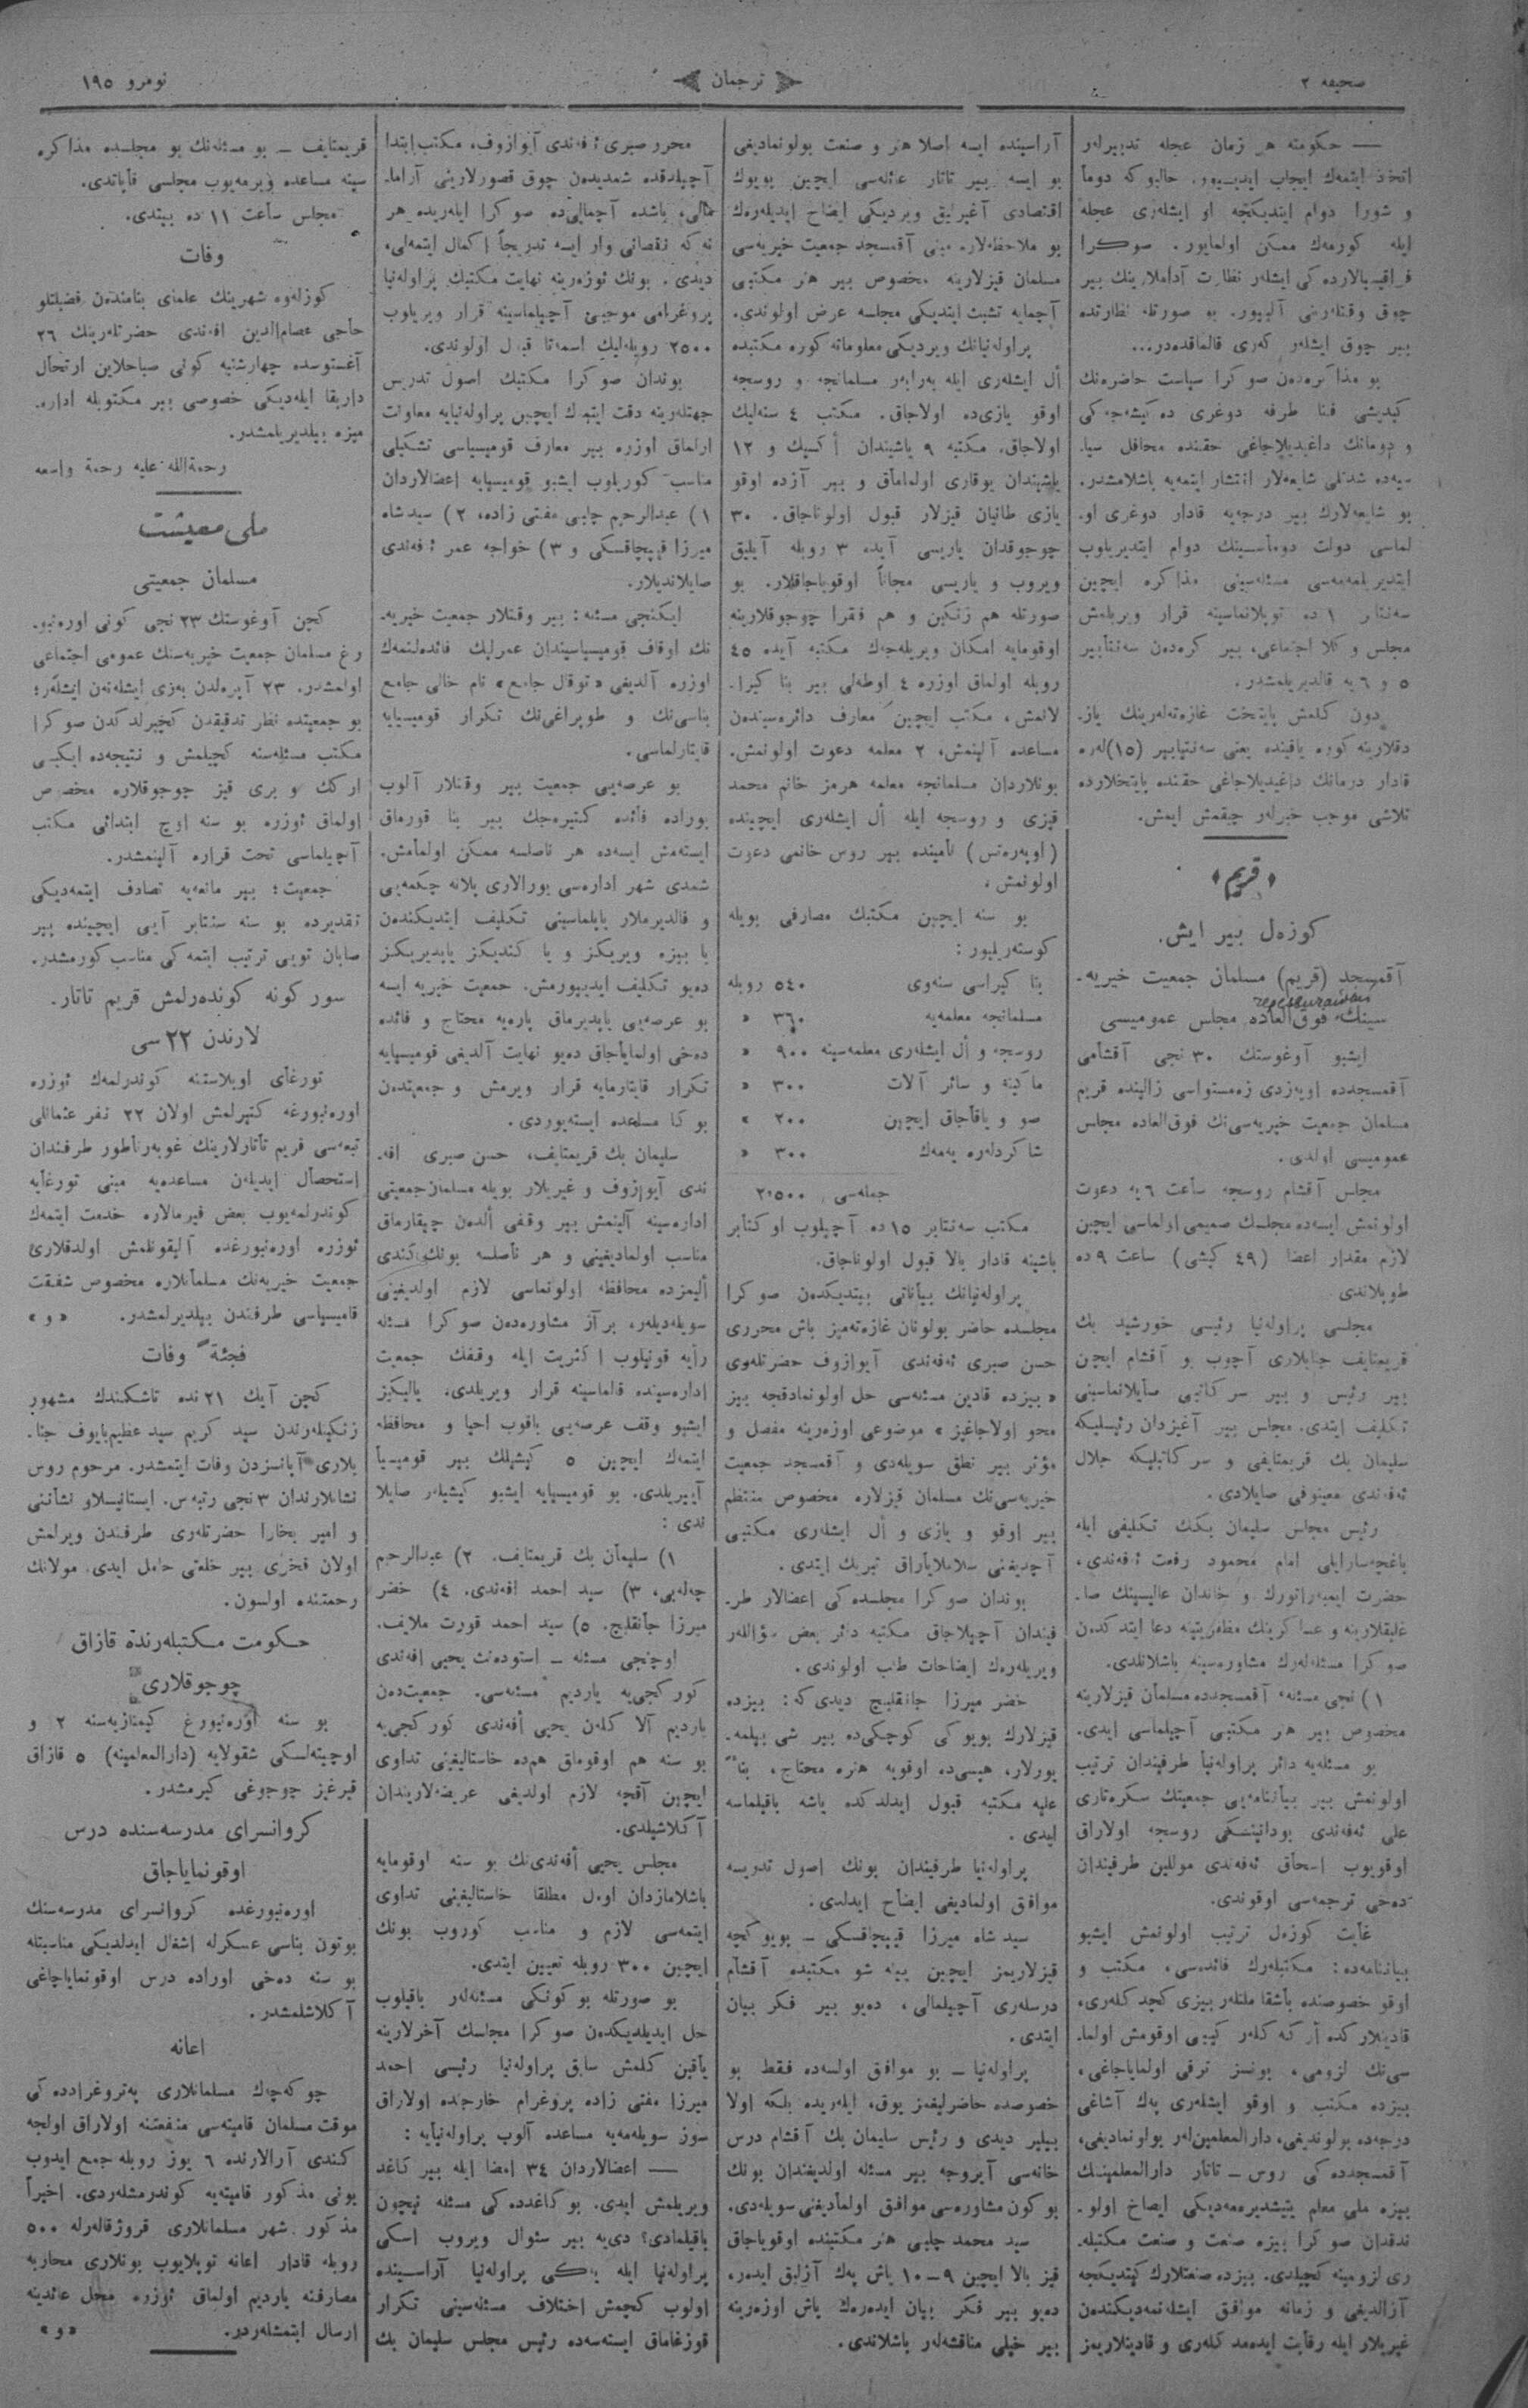 صحیفه ۲
ترجمان
نومرو ۱۹۵
— حكومته هر زمان عجله تدبیرلەر
اتخذ ایتمەك ایجاب ایدییور. حالبوكه دوما
و شورا دوام ایتدیكجه او ایشلەری عجله
ایله كورمەك ممكن اولمایور. صوكرا
چوق وقتلەرینی آلییور. بو صورتله نظارتده
بیر چوق ایشلەر كەری قالماقدەدر...
بو مذاكرەدن صوكرا سیاست حاضرەنك
كیدیشی فنا طرفه دوغری دەكیشەجەكی
و دومانك داغیدیلاجاغی حقنده محافل سیا-
سیەده شدتلی شایعەلار انتشار ایتمەیه باشلامشدر.
بو شایعەلارك بیر درجەیه قادار دوغری او-
لماسی دولت دوماسینك دوام ایتدیریلوب
ایتدیریلمەمەسی مسئلەسینی مذاكره ایچین
سەنتابر ۱ ده توپلانماسینه قرار ویریلمش
مجلس وكلا اجتماعی، بیر كرەدەن سەنتابیر
۵ و ۶ یه قالدیریلمشدر.
دون كلمش پایتخت غازەتەلەرینك یاز-
دقلارینه كوره یاقینده یعنی سەنتیابیر (۱۵)لەره
قادار دومانك داغیدیلاجاغی حقنده پایتخلارده
تلاشی موجب خبرلەر چیقمش ایمش.
﴿قریم﴾
كوزەل بیر ایش.
آقمسجد (قریم) مسلمان جمعیت خیریه-
سینك فوق‌العاده مجلس عمومیسی
ایشبو آوغوستك ۳۰ نجی آقشامی
آقمسجدده اویەزدی زەمستواسی زالینده قریم
مسلمان جمعیت خیریەسی‌نك فوق‌العاده مجلس
عمومیسی اولدی.
مجلس آقشام روسجه ساعت ۶ یه دعوت
اولونمش ایسەده مجلسك صمیمی اولماسی ایچین
لازم مقدار اعضا (۴۹ كیشی) ساعت ۹ ده
طوپلاندی
مجلسی پراولەنیا رئیسی خورشید بك
قریمتایف جنابلاری آچوب بو آقشام ایچن
بیر رئیس و بیر سركاتبی صایلانماسینی
تكلیف ایتدی. مجلس بیر آغیزدان رئیسلیكه
سلیمان بك قریمتایفی و سركاتبلیكه جلال
ئەفەندی معینوفی صایلادی.
رئیس مجلس سلیمان بكك تكلیفی ایله
باغچەسارایلی امام محمود رفعت ئەفەندی،
حضرت ایمپەراتورك و خاندان عالیسینك صا-
غلیقلارینه و عساكرینك مظفریتینه دعا ایتدكدن
صوكرا مسئلەلەرك مشاورەسینه باشلانلدی.
۱) نجی مسئله، آقمسجدده مسلمان قیزلارینه
مخصوص بیر هنر مكتبی آچیلماسی ایدی.
بو مسئلەیه دائر پراولەنیا طرفیندان ترتیب
اولونمش بیر بیاننامەیی جمعیتك سكرەتاری
علی ئەفەندی بودانینسكی روسجه اولاراق
اوقویوب اسحاق ئەفەندی موللین طرفیندان
دەحی ترجمەسی اوقوندی.
غایت كوزەل ترتیب اولونمش ایشبو
بیاننامەده: مكتبلەرك فائدەسی، مكتب و
اوقو خصوصنده باشقا ملتلەر بیزی كچدكلەری،
قادینلاركده ارككلەر كیبی اوقومش اولما-
سی‌نك لزومی، بونسز ترقی اولمایاجاغی،
بیزده مكتب و اوقو ایشلەری پەك آشاغی
درجەده بولوندیغی، دارالمعلمین‌لەر بولونمادیغی،
آقمسجددەكی روس – تاتار دارالمعلمینك
بیزه ملی معلم یتیشدیرەمەدیكی ایضاح اولو-
ندقدان صوكرا بیزه صنعت و صنعت مكتبلە-
ری لزومینه كچیلدی. بیزده صنعتلارك كیتدیكجه
آزالدیغی و زمانه موافق ایشلەنمەدیكندەن
غیریلار ایله رقابت ایدەمەدكلەری و قادینلاریمز
آراسینده ایسه اصلا هنر و صنعت بولونمادیغی
بو ایسه بیر تاتار عائلەسی ایچین بویوك
اقتصادی آغیرلیق ویردیكی ایضاح ایدیلەرەك
بو ملاحظەلاره مبنی آقمسجد جمعیت خیریەسی
مسلمان قیزلارینه مخصوص بیر هنر مكتبی
آچمایه تشبث ایتدیكی مجلسه عرض اولوندی.
پراولەنیانك ویردیكی معلوماته كوره مكتبده
أل ایشلەری ایله بەرابەر مسلمانجه و روسجه
اوقو یازی‌ده اولاجاق. مكتب ۴ سنەلیك
اولاجاق، مكتبه ۹ یاشیندان أكسیك و ۱۲
یاشیندان یوقاری اولمامأق و بیر آزده اوقو
یازی طانیان قیزلار قبول اولوناجاق. ۳۰
چوجوقدان یاریسی آیده ۳ روبله آیلیق
ویروب و یاریسی مجاناً اوقویاجاقلار. بو
صورتله هم زنكین و هم فقرا چوجوقلارینه
اوقومایه امكان ویریلەجەك مكتبه آیده ۴۵
روبله اولماق اوزره ۴ اوطەلی بیر بنا كیرا-
لانمش، مكتب ایچین معارف دائرەسیندەن
مساعده آلینمش، ۲ معلمه دعوت اولونمش.
بونلاردان مسلمانجه معلمه هرمز خانم محمد
قیزی و روسجه ایله أل ایشلەری ایچینده
(اویەرەتس) نامینده بیر روس خانمی دعوت
اولونمش.
بو سنه ایچین مكتبك مصارفی بویله
كوستەریلیور:
بنا كیراسی سنەوی ۵۴۰ روبله
مسلمانجه معلمەیه ۳۶۰ «
روسجه و أل ایشلەری معلمەسینه ۹۰۰ «
ماكینه و سائر آلات ۳۰۰ «
صو و یاقاجاق ایچین ۲۰۰ «
شاكردلەره یەمەك ۳۰۰ «
جملەسی ۲۵۰۰
مكتب سەنتابر ۱۵ ده آچیلوب اوكتابر
باشینه قادار بالا قبول اولوناجاق.
پراولەنیانك بیاناتی بیتدیكدەن صوكرا
مجلسده حاضر بولونان غازەتەمیز باش محرری
حسن صبری ئەفەندی آیوازوف حضرتلەری
«بیزده قادین مسئلەسی حل اولونمادقجه بیز
محو اولاجاغیز» موضوعی اوزەرینه مفصل و
مؤثر بیر نطق سویلەدی و آقمسجد جمعیت
خیریەسی‌نك مسلمان قیزلاره مخصوص منتظم
بیر اوقو و یازی و أل ایشلەری مكتبی
آچدیغنی سلاملایاراق تبریك ایتدی.
بوندان صوكرا مجلسدەكی اعضالار طر-
فیندان آچیلاجاق مكتبه دائر بعض سؤاللەر
ویریلەرەك ایضاحات طلب اولوندی.
خضر میرزا جانقلیچ دیدی‌كه: بیزده
قیزلارك بویوكی كوچكی‌ده بیر شی بیلمە-
یورلار، هیسی‌ده اوقویه هنره محتاج، بناً
علیه مكتبه قبول ایدلدكده یاشه باقیلماسه
ایدی.
پراولەنیا طرفیندان بونك اصول تدریسه
موافق اولمادیغی ایضاح ایدلدی.
سید شاه میرزا قیپچاقسكی – بویوكچه
قیزلاریمز ایچین ینه شو مكتبده آقشام
درسلەری آچیلمالی، دەیو بیر فكر بیان
ایتدی.
پراولەنیا – بو موافق اولسەده فقط بو
خصوصده حاضرلیغمز یوق، ایلەریده بلكه اولا
بیلیر دیدی و رئیس سلیمان بك آقشام درس
خانەسی آیروجه بیر مسئله اولدیغندان بونك
بو كون مشاورەسی موافق اولمادیغنی سویلەدی.
سید محمد چلبی هنر مكتبنده اوقویاجاق
قیز بالا ایچین ۹–۱۰ یاش پەك آزلیق ایدەره
دەیو بیر فكر بیان ایدەرەك یاش اوزەرینه
بیر خیلی مناقشەلەر باشلاندی.
محرر صبری ئەفەندی آیوازوف، مكتب ابتدا
آچیلدقده شمدیدەن چوق قصورلارینی آراما-
مالی، باشده آچمالی‌ده صوكرا ایلەریده هر
نەكه نقصانی وار ایسه تدریجاً اكمال ایتمەلی،
دیدی. بونك ئوزەرینه نهایت مكتبك پراولەنیا
پروغرامی موجبی آچیلماسینه قرار ویریلوب
۲۵۰۰ روبلەلیك اسمەتا قبول اولوندی.
بوندان صوكرا مكتبك اصول تدریس
جهتلەرینه دقت ایتمك ایچین پراولەنیایه معاونت
ارلماق اوزره بیر معارف قومیسیاسی تشكیلی
مناسب كوریلوب ایشبو قومیسیایه اعضالاردان
۱) عبدالرحیم چلبی مفتی زاده، ۲) سیدشاه
میرزا قیپچاقسكی و ۳) خواجه عمر ئەفەندی
صایلاندیلار.
ایكنجی مسئله: بیر وقتلار جمعیت خیریه-
نك اوقاف قومیسیاسیندان عمرلیك فائدەلنمەك
اوزره آلدیغی «توقال جامع» نام خالی جامع
بناسی‌نك و طوپراغی‌نك تكرار قومیسیایه
قایتارلماسی.
بو عرصەیی جمعیت بیر وقتلار آلوب
بوراده فائده كتیرەجك بیر بنا قورماق
ایستەمش ایسەده هر ناصلسه ممكن اولمامش.
شمدی شهر ادارەسی بورالاری پلانه چكمەیی
و قالدیرملار یاپلماسینی تكلیف ایتدیكندەن
یا بیزه ویریكز و یا كندیكز یاپدیریكز
دەیو تكلیف ایدییورمش. جمعیت خیریه ایسه
بو عرصەیی یاپدیرماق پارەیه محتاج و فائده
دەخی اولمایاجاق دەیو نهایت آلدیغی قومیسیایه
تكرار قایتارمایه قرار ویرمش و جمعیتدەن
بوكا مساعده ایستەیوردی.
سلیمان بك قریمتایف، حسن صبری افه-
ندی آیوازوف و غیریلار بویله مسلمان جمعیتی
ادارەسینه آلینمش بیر وقفی ألدەن چیقارماق
مناسب اولمادیغینی و هر ناصلسه بونك كندی
ألیمزده محافظه اولونماسی لازم اولدیغینی
سویلەدیلەر، بر آز مشاورەدەن صوكرا مسئله
رأیه قونیلوب اكثریت ایله وقفك جمعیت
ادارەسینده قالماسینه قرار ویریلدی، یالیكیز
ایشبو وقف عرصەیی یاقوب احیا و محافظه
ایتمەك ایچین ۵ كیشیلك بیر قومیسیا
آییریلدی. بو قومیسیایه ایشبو كیشیلەر صایلا
ندی:
۱) سلیمان بك قریمتایف. ۲) عبدالرحیم
چەلەبی، ۳) سید احمد افەندی. ۴) خضر
میرزا جانقلیچ. ۵) سید احمد قورت ملایف.
اوچنجی مسئله – استودەنت یحیی افەندی
كوركجی‌یه یاردیم مسئلەسی. جمعیت‌دەن
یاردیم آلا كلەن یحیی أفەندی كوركجی‌یه
بو سنه هم اوقوماق هم‌ده خاستالیغینی تداوی
ایچین آقچه لازم اولدیغی عریضەلاریندان
آكلاشیلدی.
مجلس یحیی أفەندی‌نك بو سنه اوقومایه
باشلامازدان اول مطلقا خاستالیغینی تداوی
ایتمەسی لازم و مناسب كوروب بونك
ایچین ۳۰۰ روبله تعیین ایتدی.
بو صورتله بو كونكی مسئلەلەر باقیلوب
حل ایدیلدیكدەن صوكرا مجلسك آخرلارینه
یأقین كلمش سابق پراولەنیا رئیسی احمد
میرزا مفتی زاده پروغرام خارجنده اولاراق
سوز سویلەمەیه مساعده آلوب پراولەنیایه:
— اعضالاردان ۳۴ امضا ایله بیر كاغد
ویریلمش ایدی. بو كاغددەكی مسئله نیچون
باقیلمادی؟ دی‌یه بیر سئوال ویروب اسكی
پراولەنیا ایله یـڭـی پراولەنیا آراسینده
اولوب كچمش اختلاف مسئلەسینی تكرار
قوزغاماق ایستەسەده رئیس مجلس سلیمان بك
قریمتایف – بو مسئلەنك بو مجلسده مذاكره
سینه مساعده ویرمەیوب مجلسی قاپاتدی.
مجلس ساعت ۱۱ ده بیتدی.
وفات
كوزلەوه شهرینك علمای بنامندەن فضیلتلو
حاجی عصام‌الدین افەندی حضرتلەرینك ۲۶
آغستوسده چهارشنبه كونی صباحلاین ارتحال
داربقا ایلەدیكی خصوصی بیر مكتوبله اداره-
میزه بیلدیریلمشدر.
رحمةالله علیه رحمة واسعه
ملی معیشت
مسلمان جمعیتی
كچن آوغوستك ۲۳ نجی كونی اورەنبو-
رغ مسلمان جمعیت خیریەسنك عمومی اجتماعی
اولمشدر. ۲۳ آیرەلدن بەری ایشلەنەن ایشلەر؛
بو جمعیتده نظر تدقیقدن كچیرلدكدن صوكرا
مكتب مسئلەسنه كچیلمش و نتیجەده ایكیسی
ارككـ و بری قیز چوجوقلاره مخصوص
اولماق ئوزره بو سنه اوچ ابتدائی مكتب
آچیلماسی تحت قراره آلینمشدر.
جمعیت؛ بیر مانعەیه تصادف ایتمەدیكی
تقدیرده بو سنه سنتابر آیی ایچینده بیر
صابان تویی ترتیب ایتمەكی مناسب كورمشدر.
سوركونه كوندەرلمش قریم تاتار-
لارندن ۲۲ سی
تورغای اوبلاستنه كوندرلمەك ئوزره
اورەنبورغه كتیرلمش اولان ۲۲ نفر عثمانلی
تبعەسی قریم تأتارلارینك غوبەرناطور طرفندان
استحصال ایدیلەن مساعدەیه مبنی تورغایه
كوندرلمەیوب بعض فیرمالاره خدمت ایتمەك
ئوزره اورەنبورغده آلیقونلمش اولدقلاری
جمعیت خیریەنك مسلمانلاره مخصوص شفقت
قامیسیاسی طرفندن بیلدیرلمشدر. «و»
فجئةً وفات
كچن آیك ۲۱ نده تاشكندك مشهور
زنكینلەرندن سید كریم سید عظیم‌بایوف جنا-
بلاری آپانسزدن وفات ایتمشدر. مرحوم روس
نشانلارندان ۳ نجی رتبەس. ایستانیسلاو نشأننی
و امیر بخارا حضرتلەری طرفندن ویرلمش
اولان فخری بیر خلعتی حامل ایدی. مولانك
رحمتنده اولسون.
حكومت مكتبلەرنده قازاق
چوجوقلاری
بو سنه اورەنبورغ كیمنازیەسنه ۲ و
اوچیتەلسكی شقولایه (دارالمعلمینه) ۵ قازاق
قیرغیز چوجوغی كیرمشدر.
كروانسرای مدرسەسنده درس
اوقونمایاجاق
اورەنبورغده كروانسرای مدرسەسنك
بوتون بناسی عسكرله اشغال ایدلدیكی مناسبتله
بو سنه دەخی اوراده درس اوقونمایاجاغی
آكلاشلمشدر.
اعانه
چوكەچك مسلمانلاری پەتروغراددەكی
موقت مسلمان قامیتەسی منفعتنه اولاراق اولجه
كندی آرالارنده ۶ یوز روبله جمع ایدوب
بونی مذكور قامیتەیه كوندرمشلەردی. اخیراً
مذكور شهر مسلمانلاری قروژقالەرله ۵۰۰
روبله قادار اعانه توپلایوب بونلاری محاربه
مصارفنه یاردیم اولماق ئوزره محل عائدینه
ارسال ایتمشلەردر. «و»